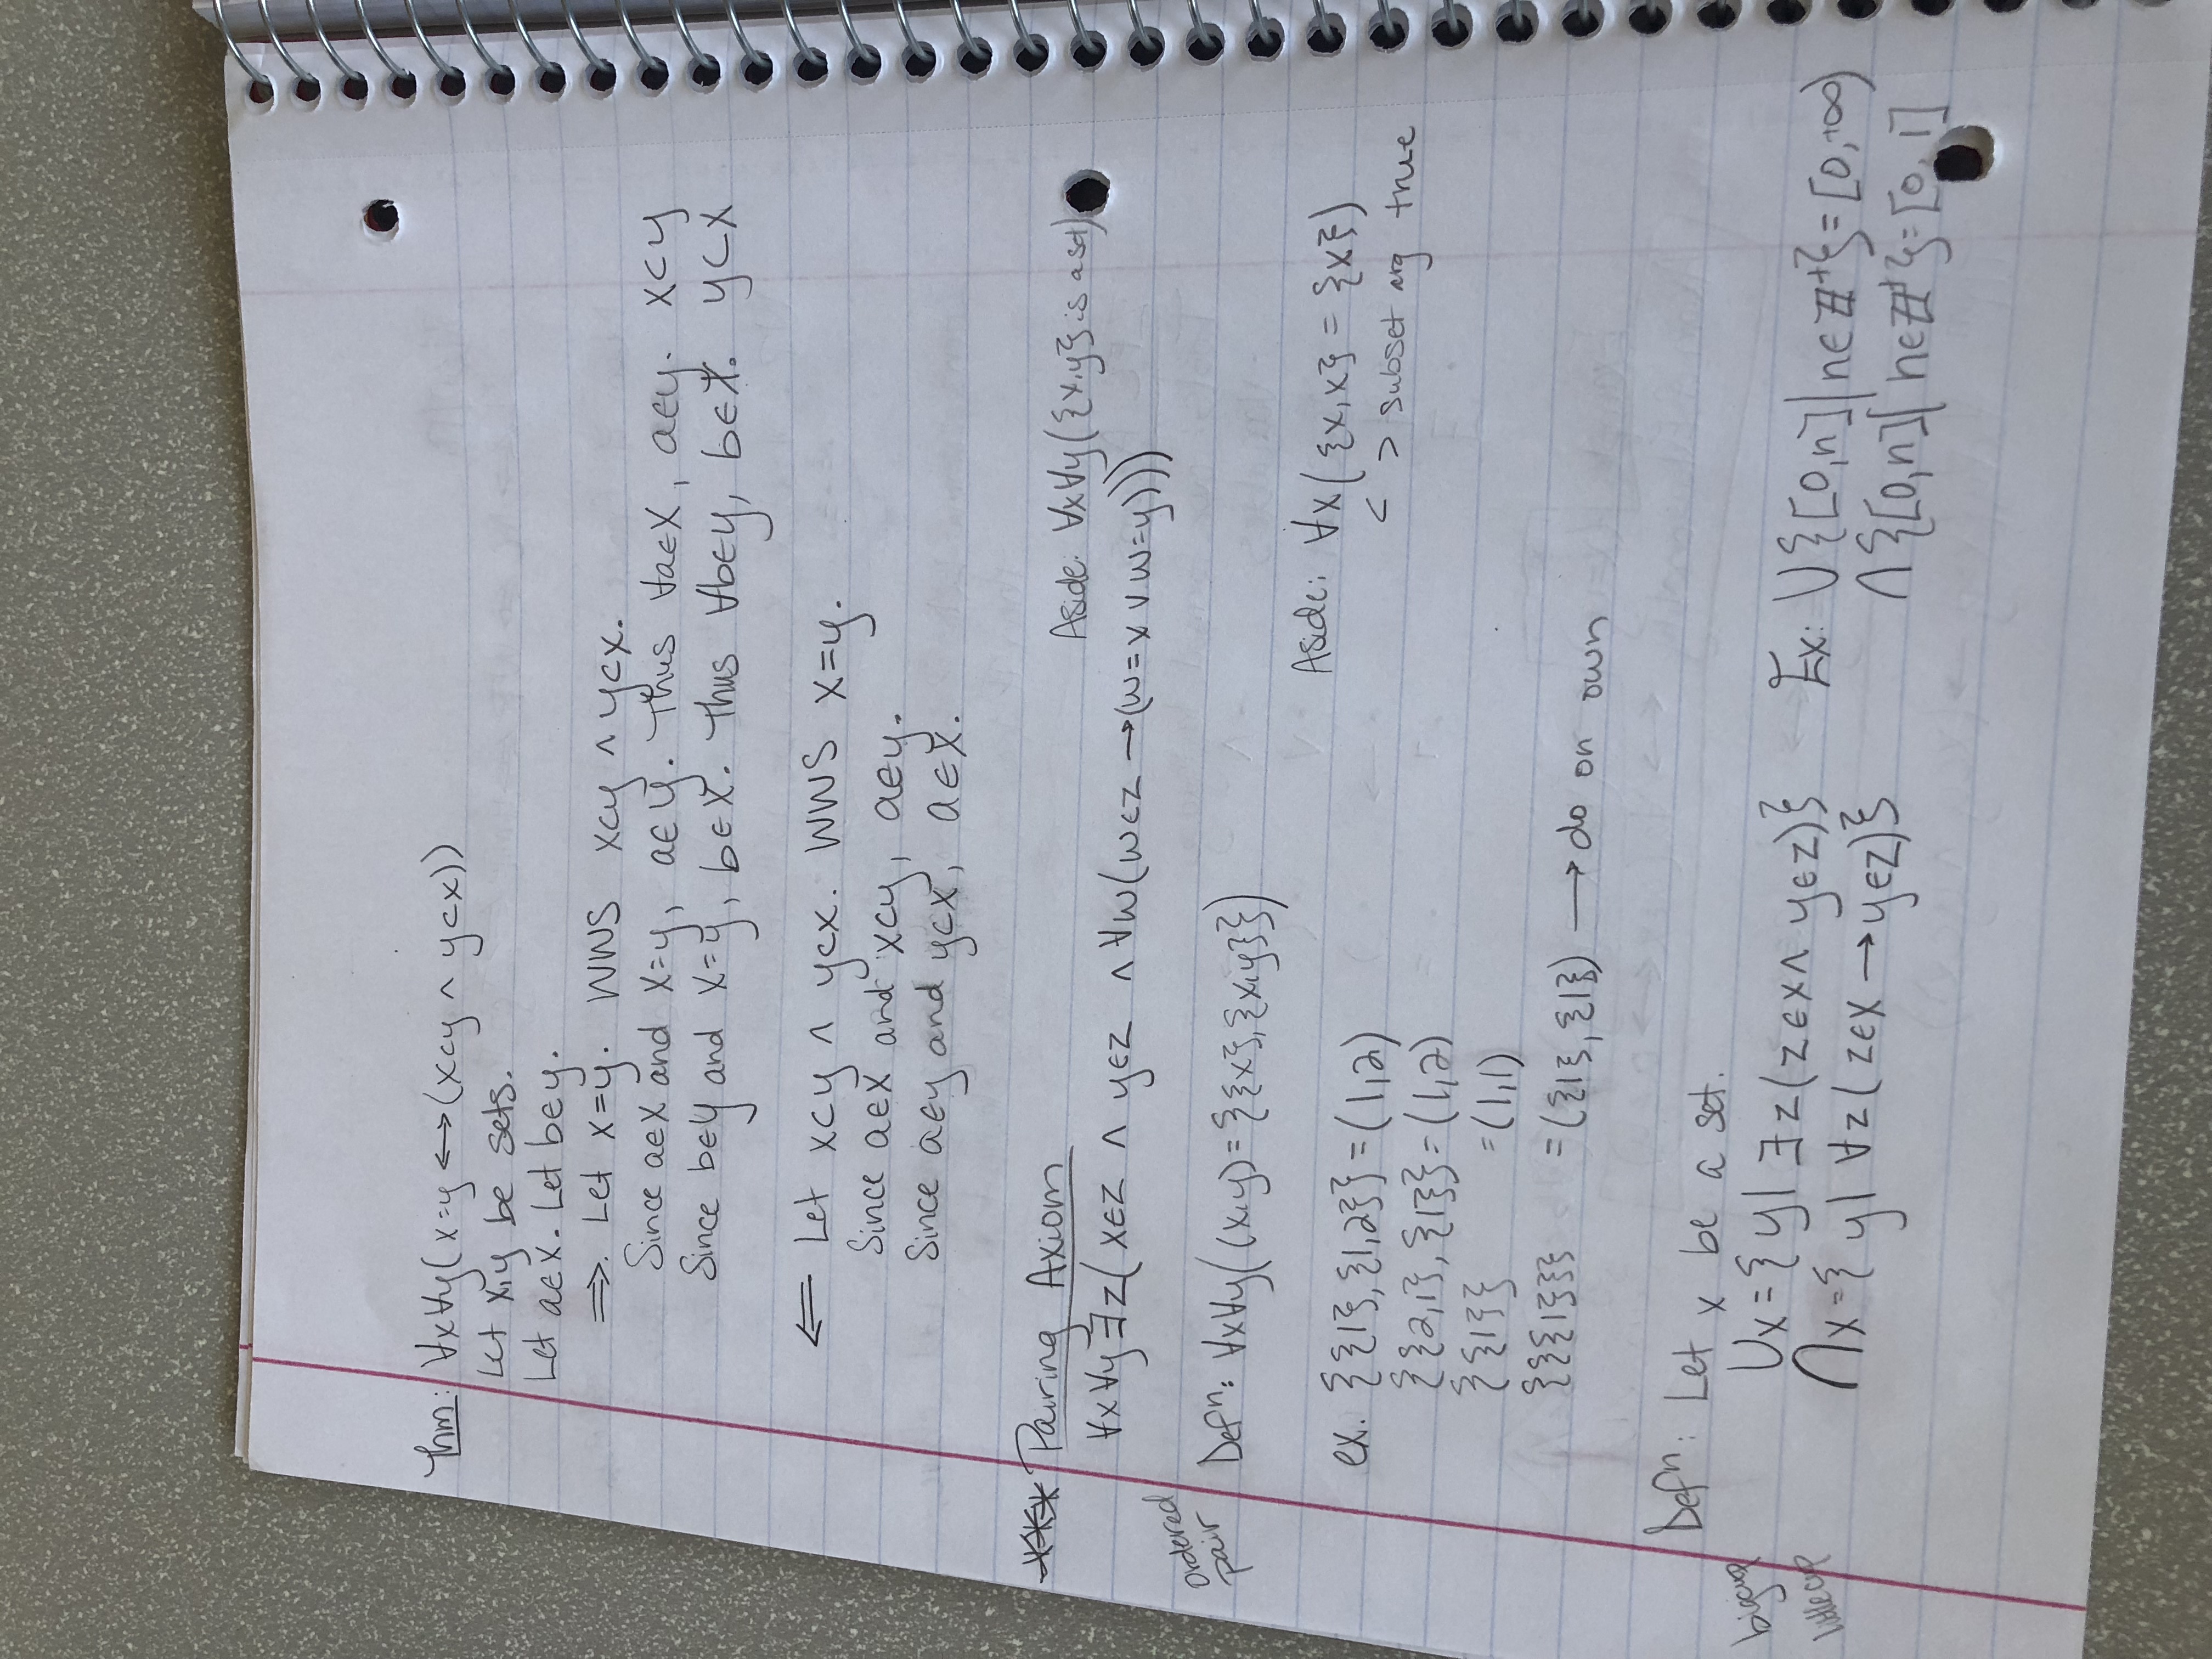 Thm: ∀x∀y(x=y ↔ (x⊂y ∧ y⊂x))
Let x,y be sets.
Let a∈x. Let b∈y.
⇒. Let x=y. WWS x⊂y ∧ y⊂x.
Since a∈x and x=y, a∈y. Thus ∀a∈x, a∈y. x⊂y
Since b∈y and x=y, b∈x. Thus ∀b∈y, b∈x. y⊂x
⇐ Let x⊂y ∧ y⊂x. WWS x=y.
Since a∈x and x⊂y, a∈y.
Since a∈y and y⊂x, a∈x.
*** Pairing Axiom
Aside: ∀x∀y({x,y} is a set)
∀x∀y∃z(x∈z ∧ y∈z ∧ ∀w(w∈z → (w=x ∨ w=y)))
ordered
pair
Defⁿ: ∀x∀y((x,y)={{x},{x,y}})
Aside: ∀x({x,x} = {x})
< > subset arg true
ex. {{1},{1,2}}=(1,2)
{{2,1},{1}}=(1,2)
{{1}} =(1,1)
{{{1}}} =({1},{1}) → do on own
Defⁿ: Let x be a set.
bigcup
⋃x={y| ∃z(z∈x ∧ y∈z)}
Ex: ⋃{[0,n]|n∈ℤ⁺}=[0,+∞)
⋂x={y| ∀z(z∈x → y∈z)}
⋂{[0,n]| n∈ℤ⁺}=[0,1]